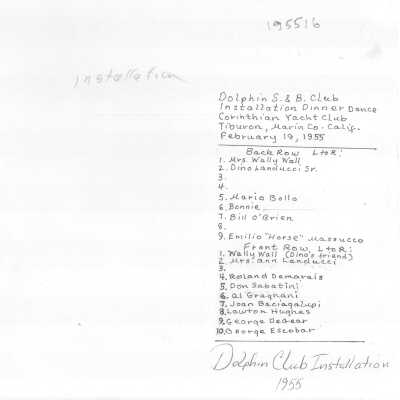 195516
installation
Dolphin S. & B. Club
Installation Dinner Dance
Corinthian Yacht Club
Tiburon, Marin Co - Calif.
February 19, 1955
Back Row L to R:
1. Mrs. Wally Wall
2. Dino Landucci Sr.
3.
4.
5. Mario Bollo
6. Bonnie
7. Bill O'Brien
8.
9. Emilio "Horse" Massucco
Front Row L to R:
1. Wally Wall (Dino's friend)
2. Mrs. Ann Landucci
3.
4. Roland Demarais
5. Don Sabatini
6. Al Gragnani
7. Joan Baciagalupi
8. Lawton Hughes
9. George
10. George Escobar
Dolphin Club Installation
1955